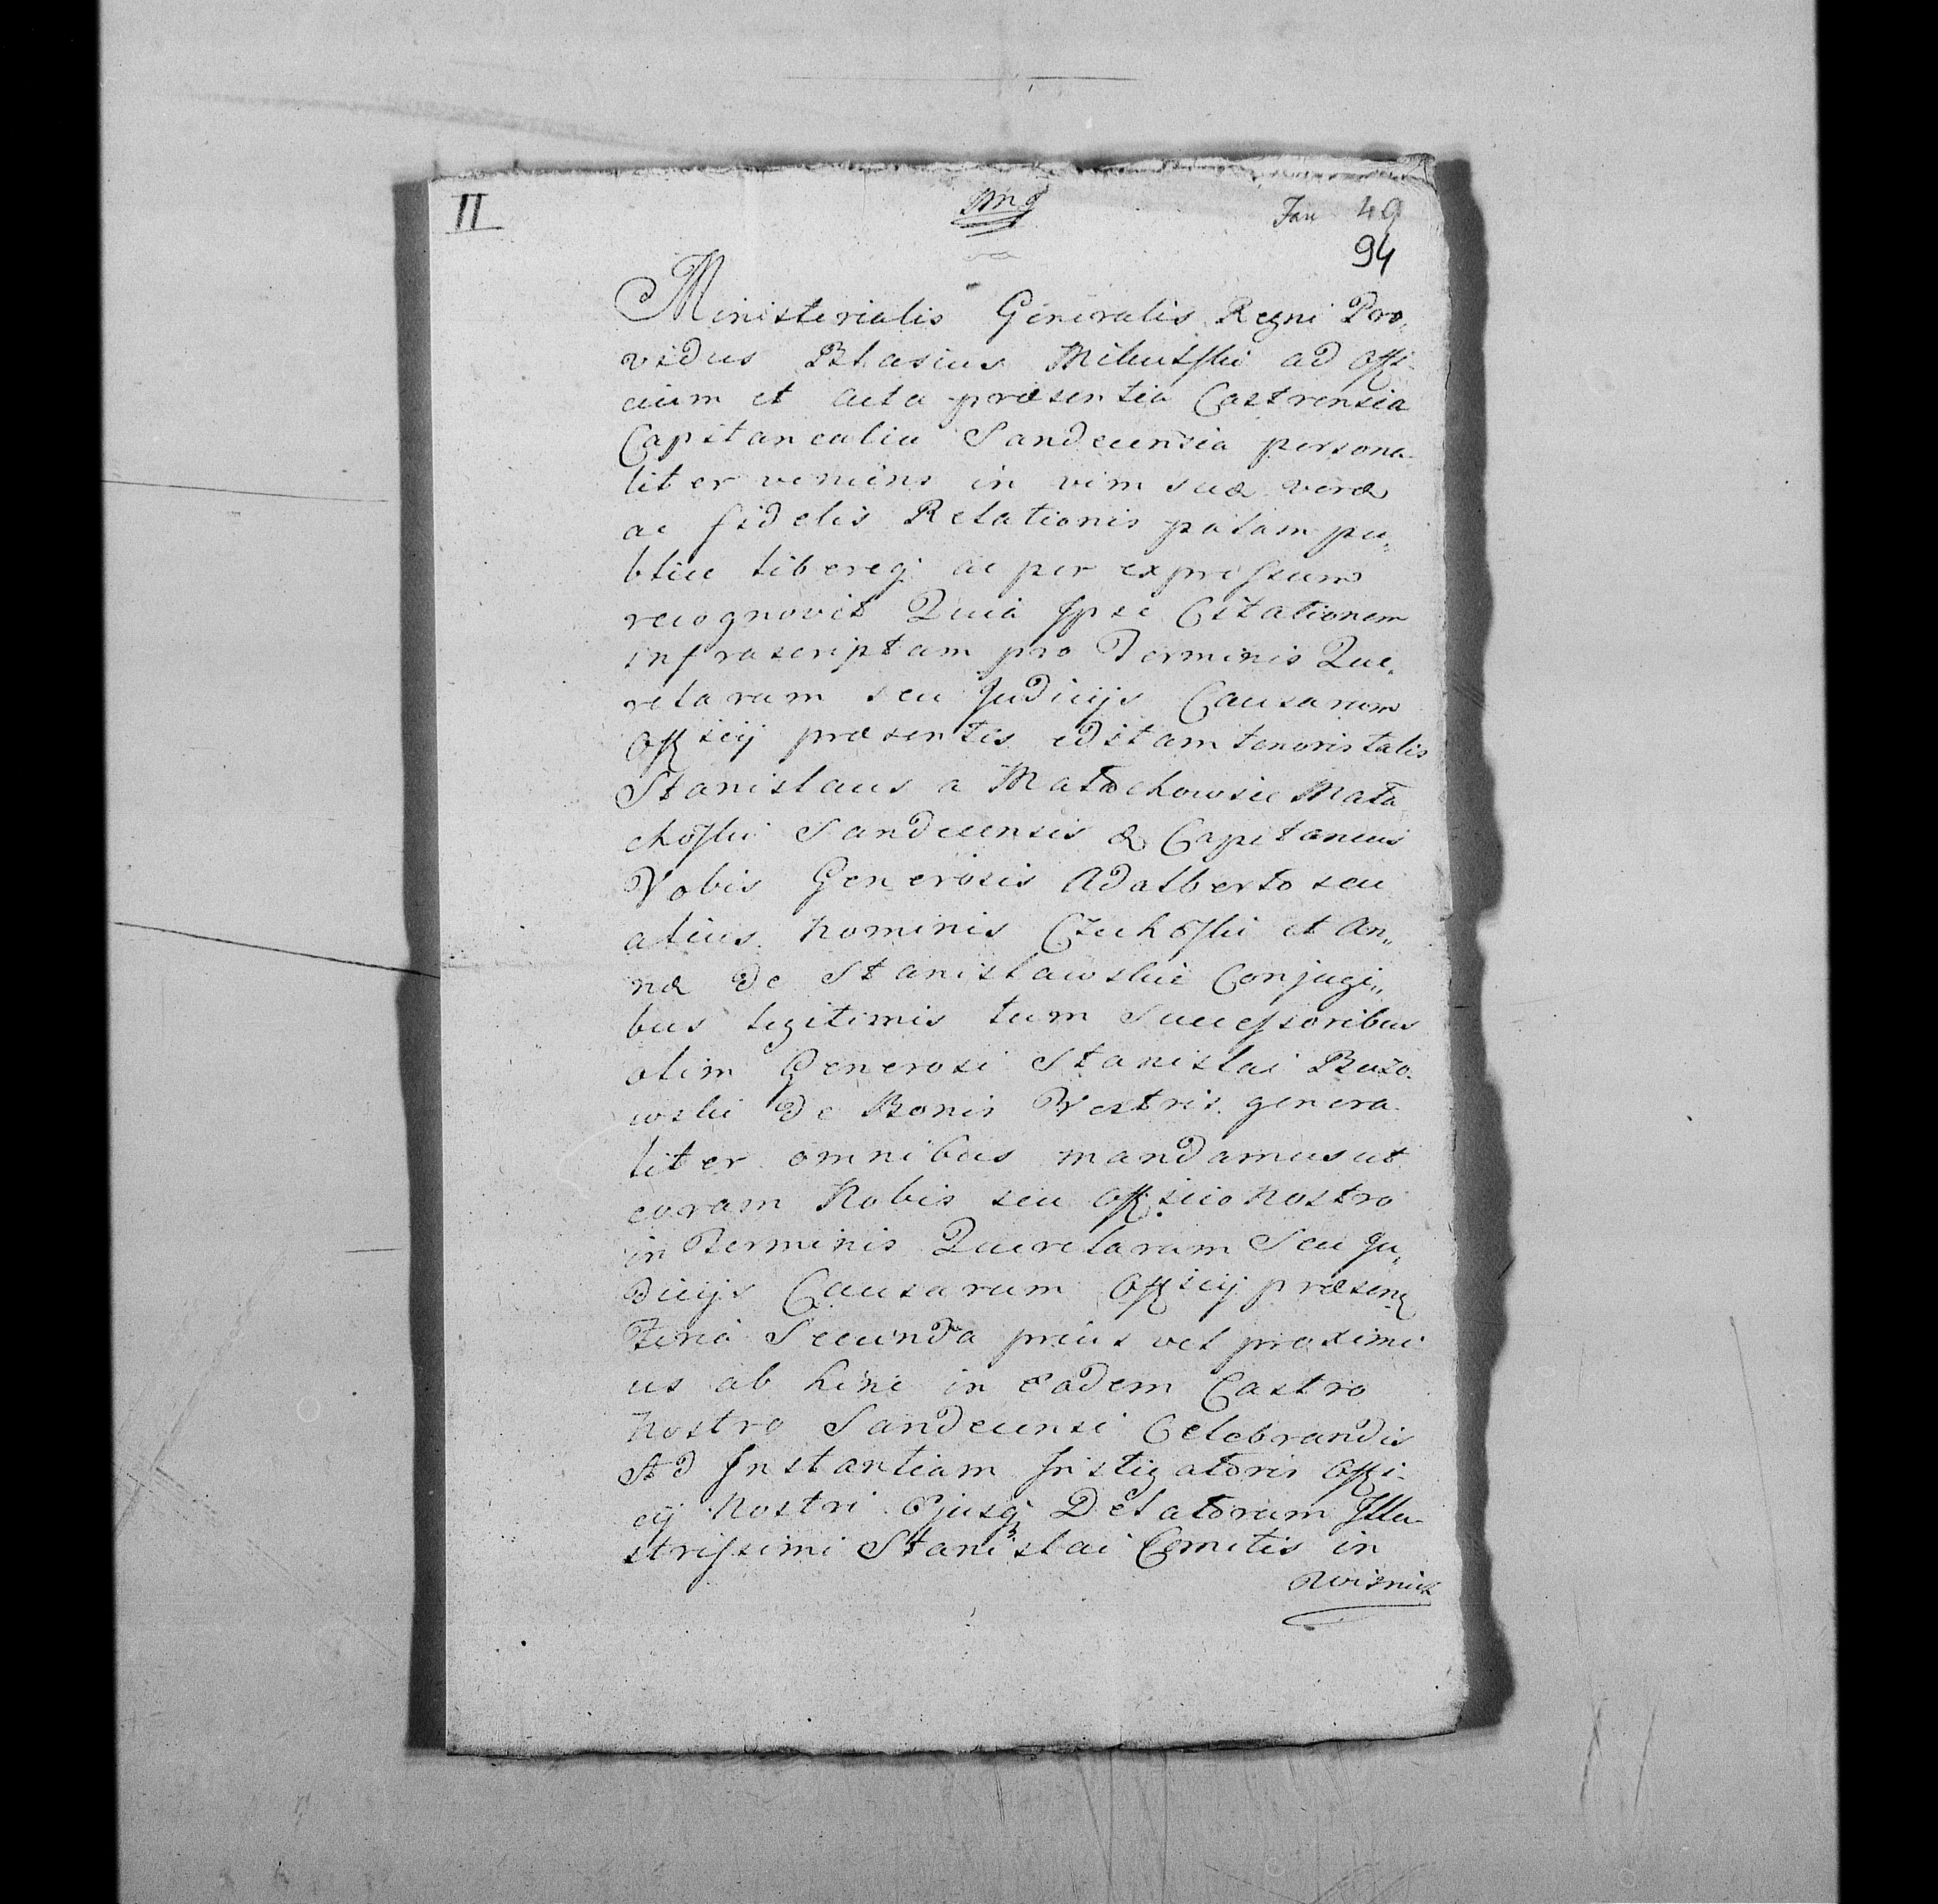 II
Jan 49
94
Ministerialis Generalis Regni Pro„
vidus Blasius Milutski ad offi-
cium et acta præsentia Castrensia
Capitanealia Sandecensia persona-
liter veniens in vim suæ veræ
ac fidelis Relationis palam pu„
blice libereq; ac per expressum
recognovit Quia Ipse Citationem
infrascriptam pro Terminis Que„
relarum seu Judicijs Causarum
Officij præsentis editam tenoris talis
Stanislaus a Małachowice Mała
choski Sandecensis & Capitaneus
Vobis Generosis Adalberto seu
alius nominis Czuhoski et An„
næ de Stanisławskie Conjugi„
bus legitimis tum Successoribus
olim Generosi Stanislai Buzo-
wski de Bonis Vestris genera-
liter omnibus mandamus ut
coram Nobis seu officio nostro
in Terminis Querelarum seu Ju„
dicijs Causarum Officij præsen
Feria Secunda prius vel proximi
us ab hinc in eadem Castro
nostro Sandecensi Celebrandis
Ad Instantiam Instigatoris offi-
cij nostri ejusq; Delatorum Illu-
strissimi Stanislai Comitis in
Wisnicz